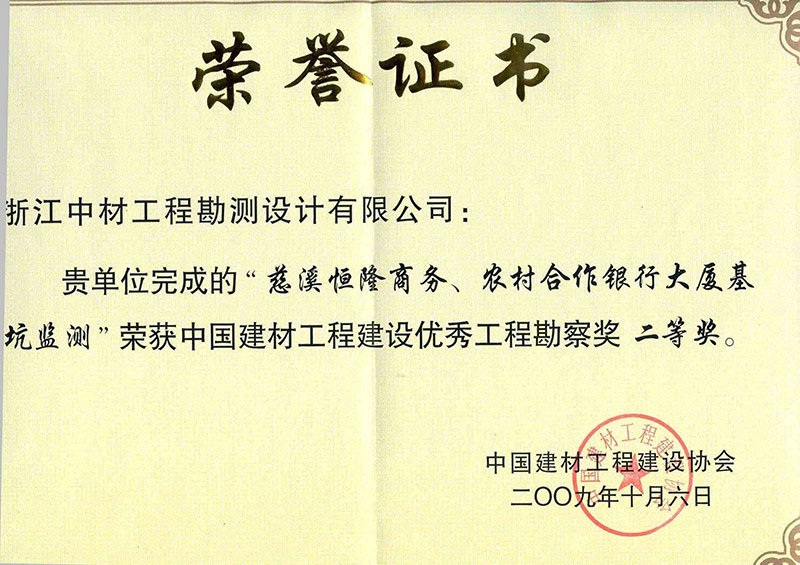 荣誉证书
浙江中材工程勘测设计有限公司：
贵单位完成的“慈溪恒隆商务、农村合作银行大厦基
坑监测”荣获中国建材工程建设优秀工程勘察奖 二等奖。
中国建材工程建设协会
二〇〇九年十月六日
中国建材工程建设协会